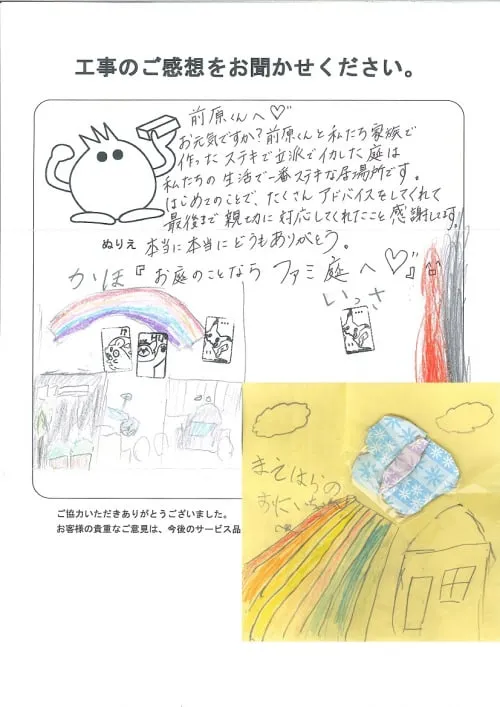 工事のご感想をお聞かせください。
前原くんへ♡
お元気ですか?前原くんと私たち家族で
作ったステキで立派でイカした庭は
私たちの生活で一番ステキな居場所です。
はじめてのことで、たくさんアドバイスをしてくれて
最後まで親切に対応してくれたこと感謝します。
ぬりえ
本当に本当にどうもありがとう。
かほ『お庭のことなら ファミ庭へ♡』
いっさ
まえはらの
おにいちゃん
ご協力いただきありがとうございました。
お客様の貴重なご意見は、今後のサービス品